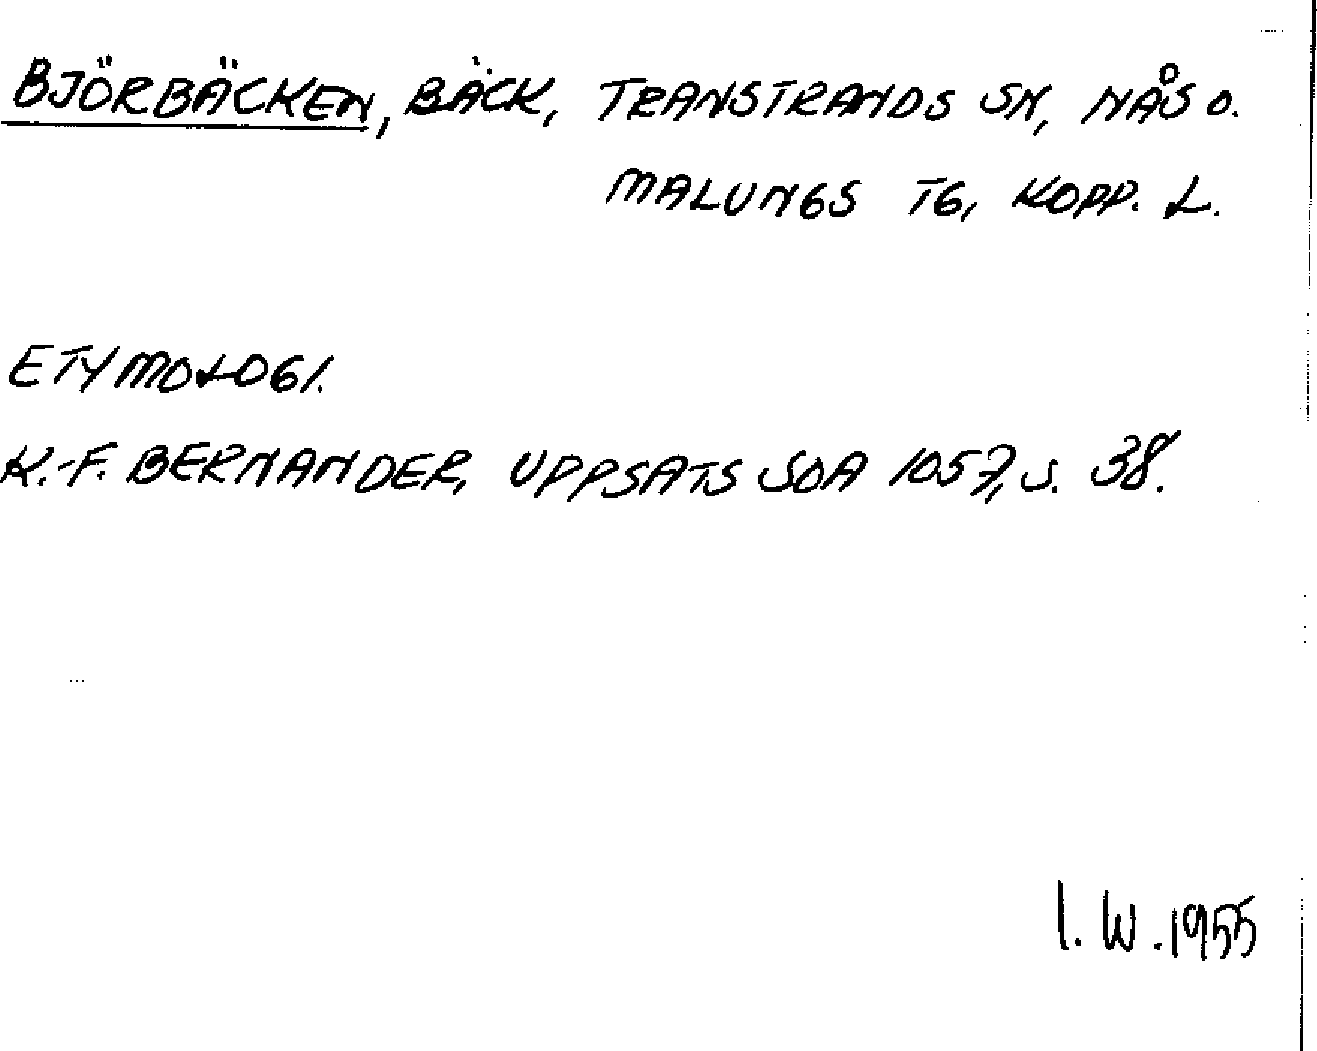 BJÖRBÄCKEN, BÄCK, TRANSTRANDS SN, NÅS O.
MALUNGS TG, KOPP. L.
ETYMOLOGI.
K.-F. BERNANDER, UPPSATS SOA 1057, S. 38.
I. W. 1955